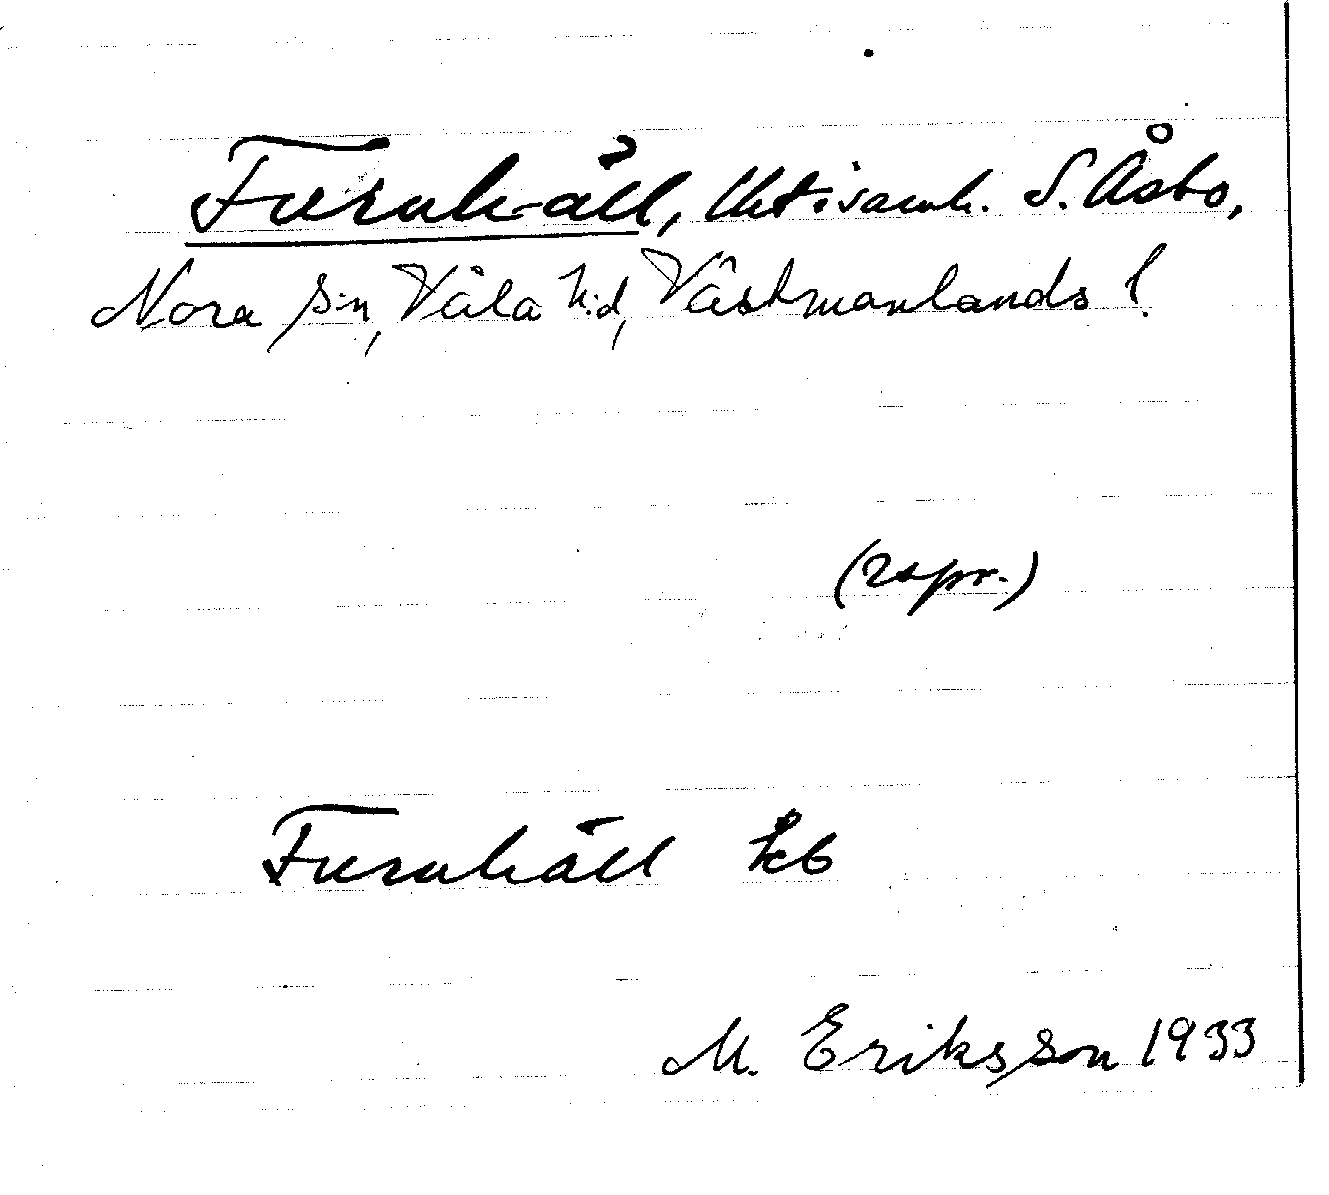 Furuhäll, S. Åsbo,
Nora s:n, Våla h:d, Västmanlands l.
(rspr.)
Furuhäll
M. Eriksson 1933